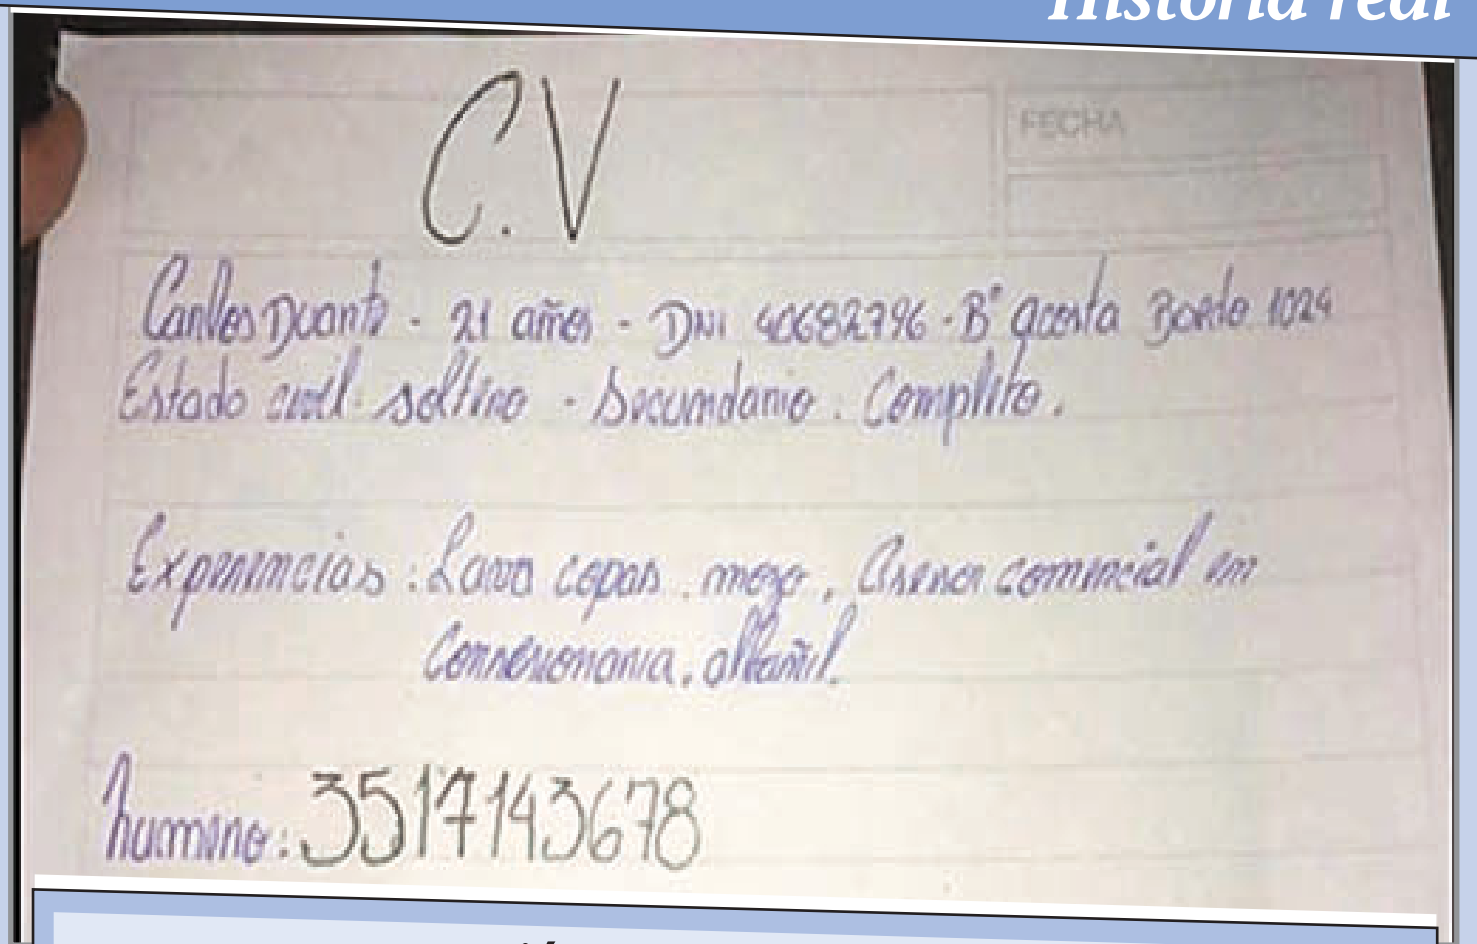 Historia real
C.V
FECHA
Carlos Duarte - 21 años - DNI 40682796 - B° acosta 1024
Estado civil: soltero - Secundario. Completo.
Experiencias: Lava copas. mozo, Asesor comercial en
Conسesionaria, albañil.
numero: 3517143678